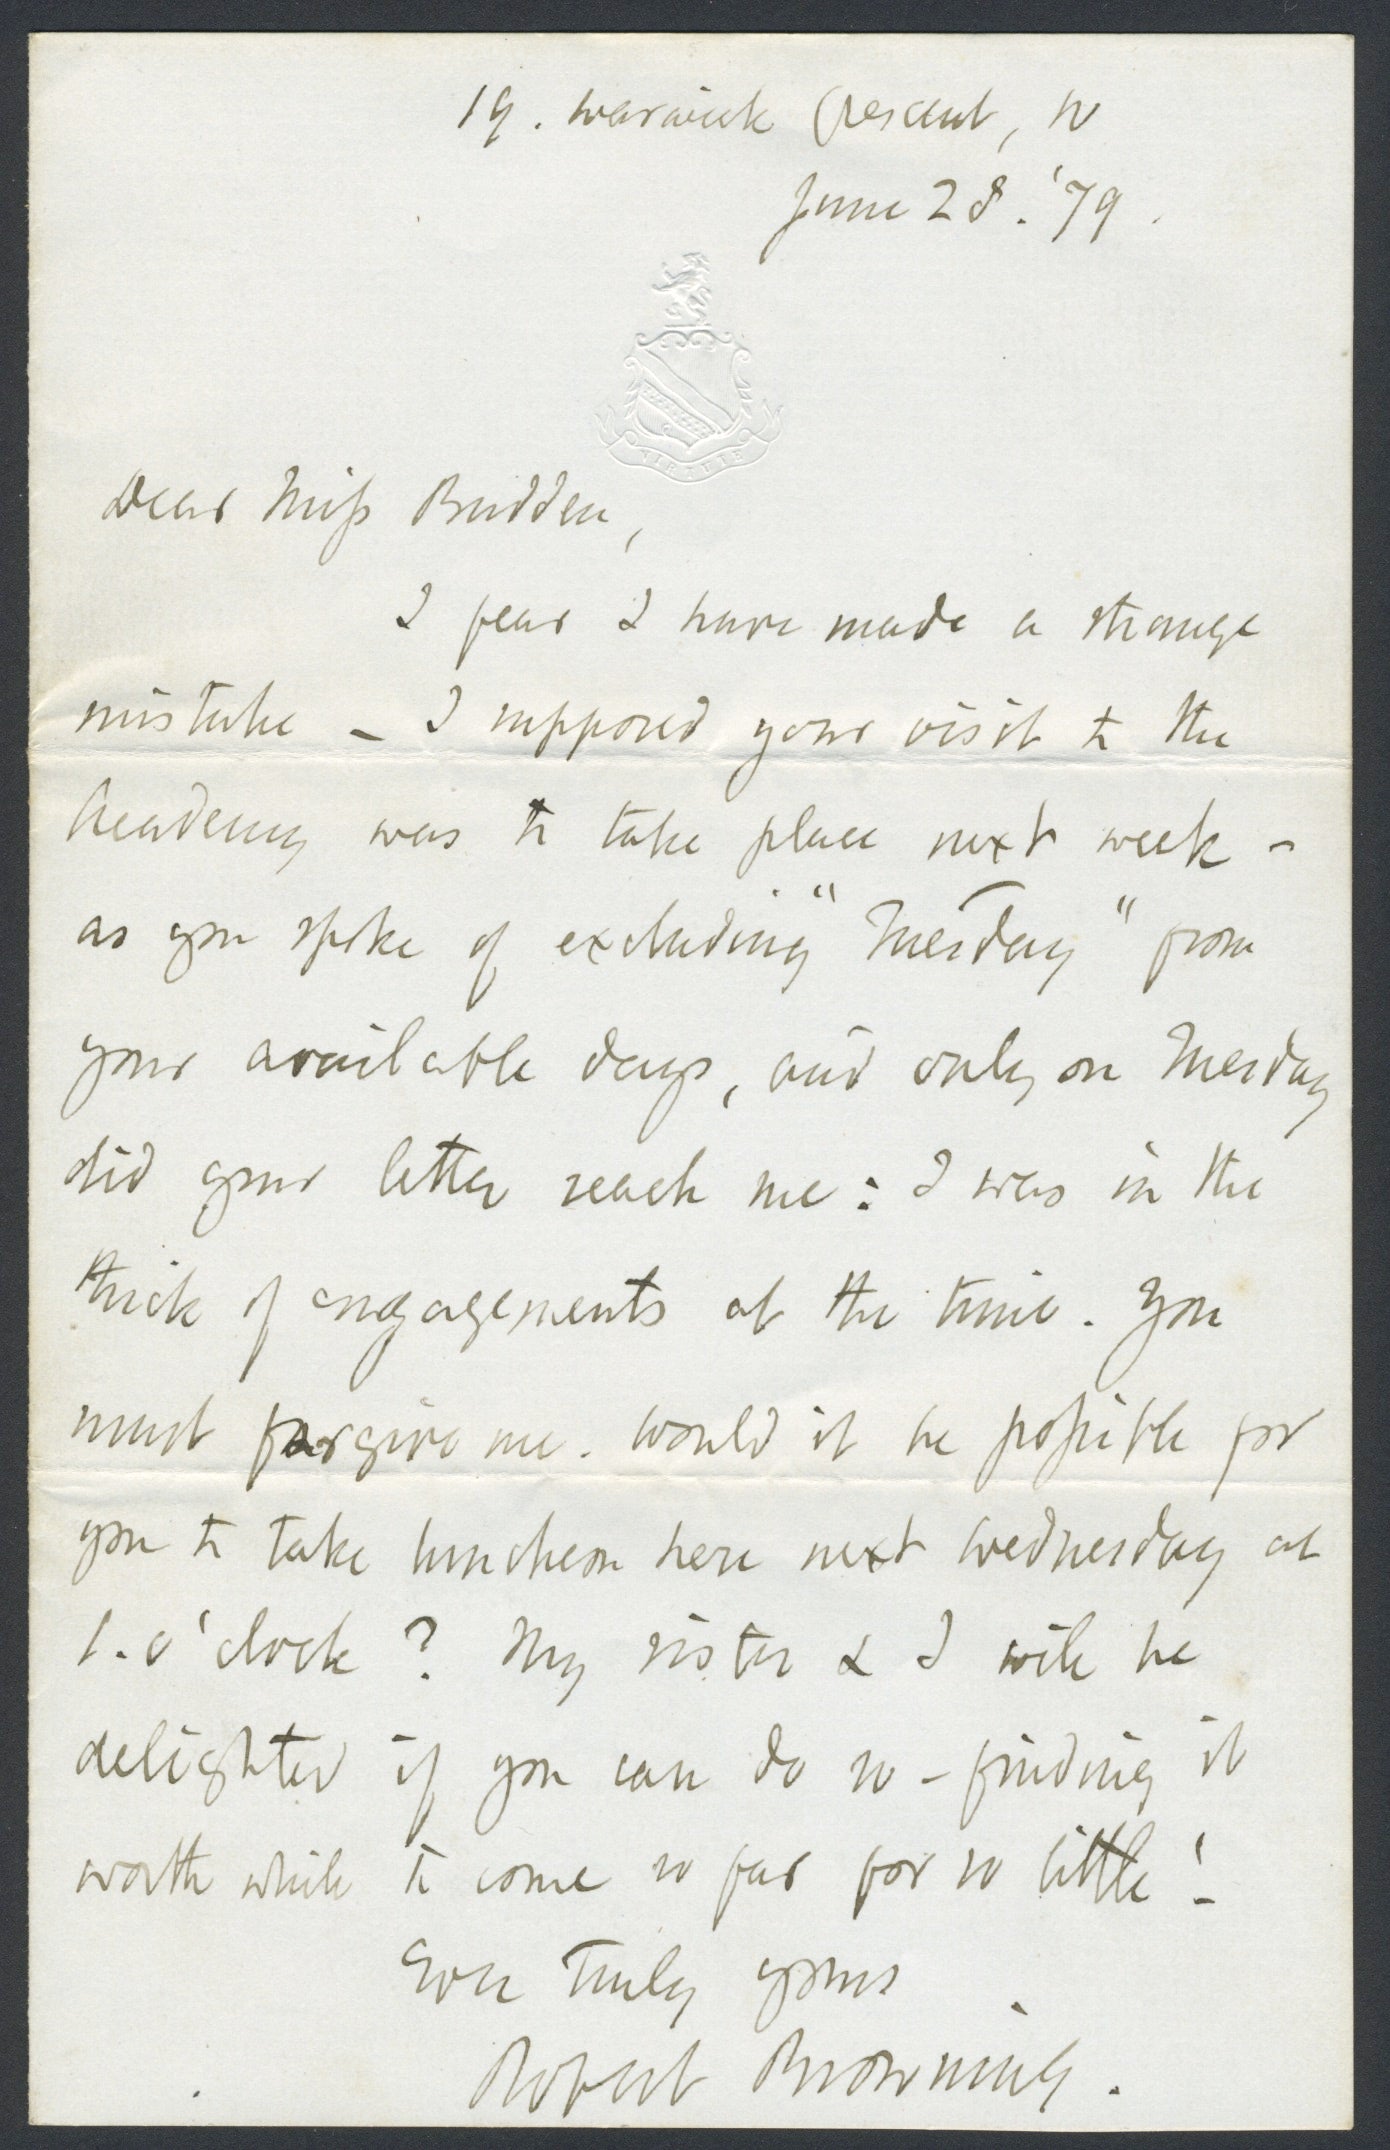 19. Warwick Crescent, W
June 28. '79.
VIRTUTE
Dear Miss Budden,
I fear I have made a strange
mistake – I supposed your visit to the
Academy was to take place next week –
as you spoke of excluding "Tuesday" from
your available days, and only on Tuesday
did your letter reach me: I was in the
thick of engagements at the time. You
must forgive me. Would it be possible for
you to take luncheon here next Wednesday at
1. o'clock? My sister & I will be
delighted if you can do so – finding it
worth while to come so far for so little!
Ever truly yours
Robert Browning.